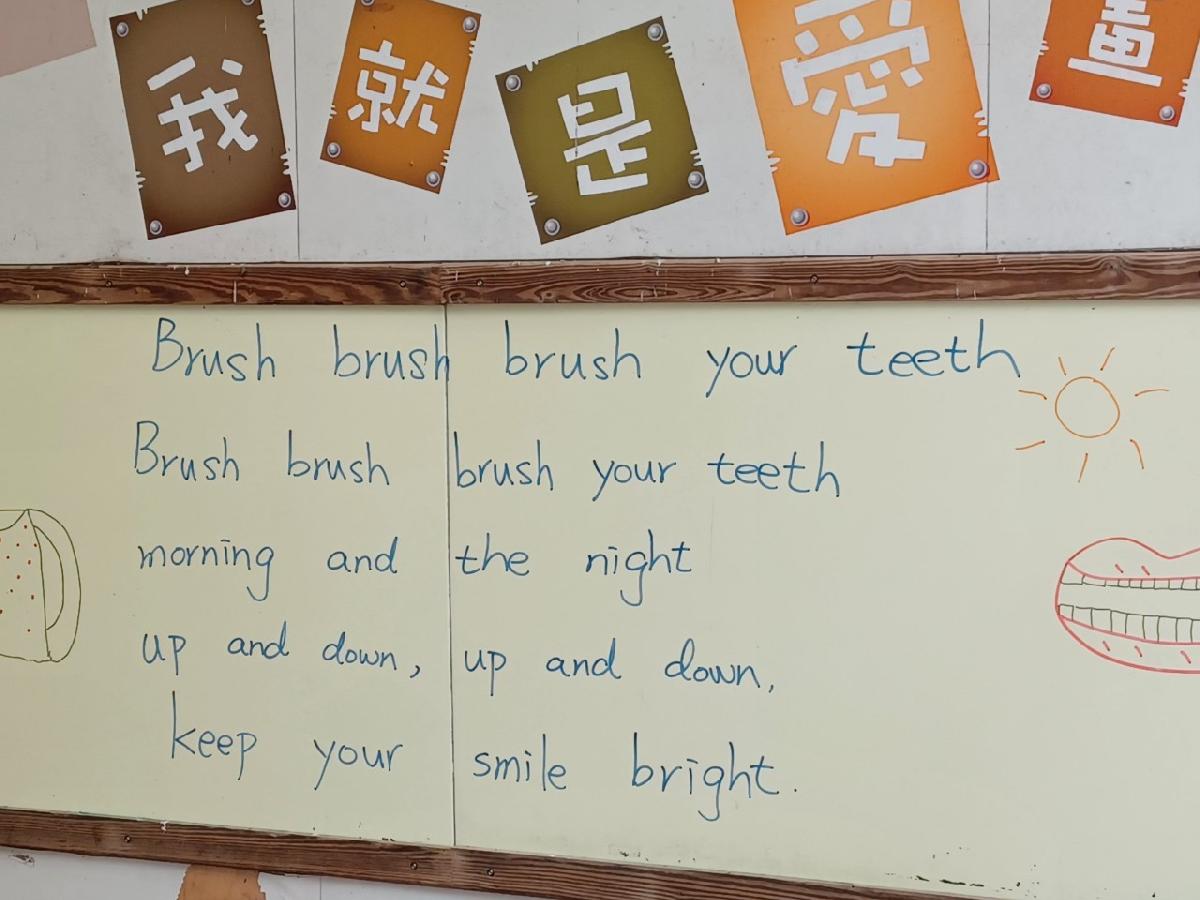 我就是愛
Brush brush brush your teeth
Brush brush brush your teeth
morning and the night
up and down, up and down,
keep your smile bright.